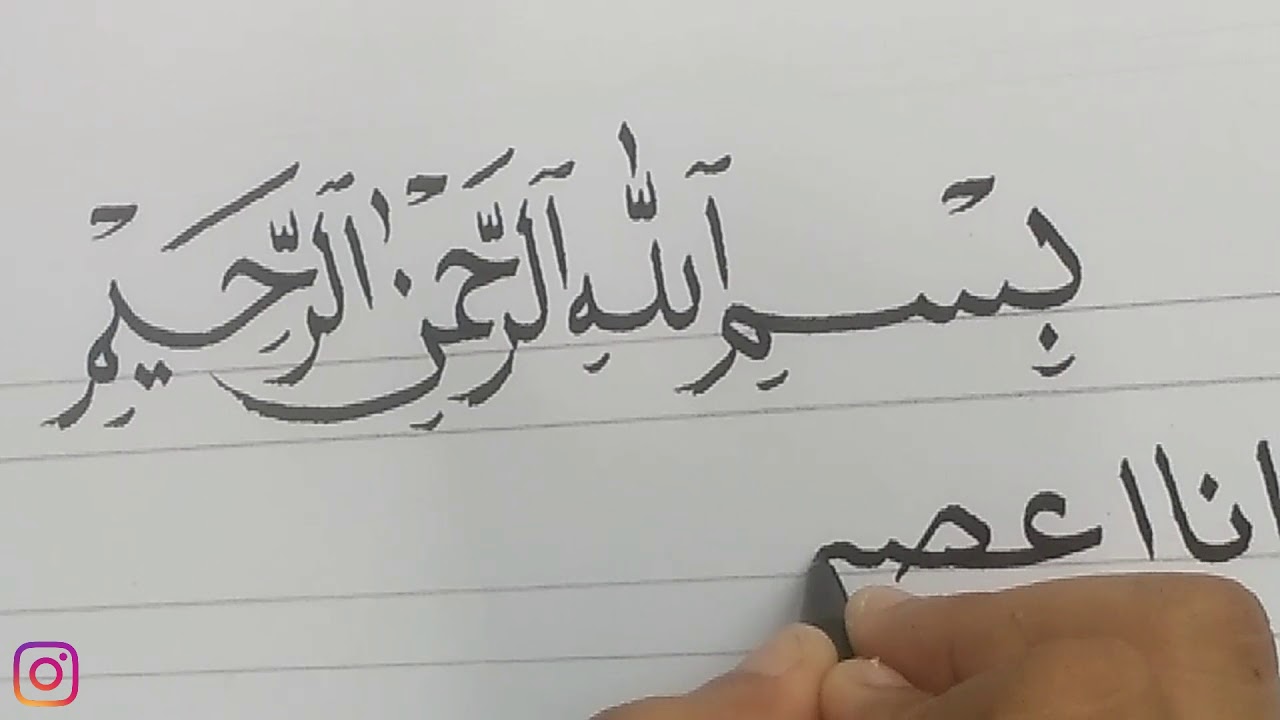 بِسْمِ ٱللّٰهِ ٱلرَّحْمٰنِ ٱلرَّحِيْمِ
انا